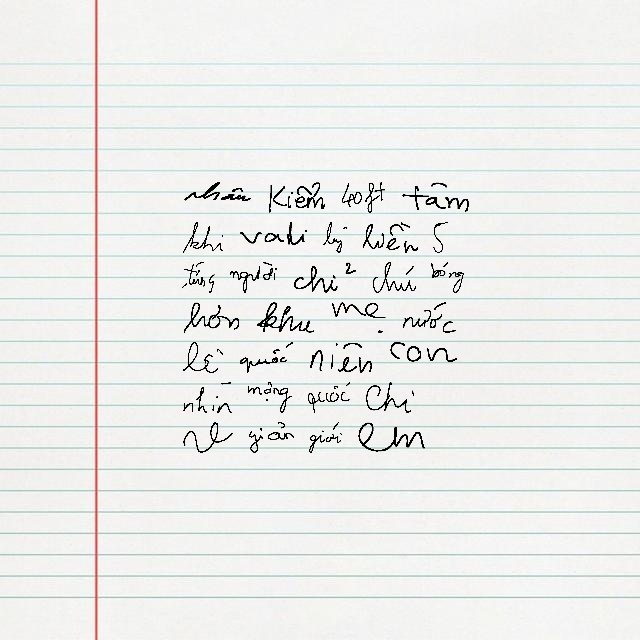 nhân Kiểm 40ft tâm
khi vali lý liền 5
tiếng người chi² chú bóng
hơn khu mẹ. nước
lê quốc niên con
nhìn mộng quốc Chi
về giản giới em